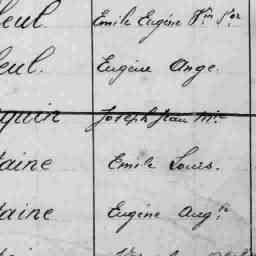 leul. Emile Eugène Vin Sor
leul. Eugène Ange.
quin Joseph Jean Mie
taine Emile Louis.
taine Eugène Augte